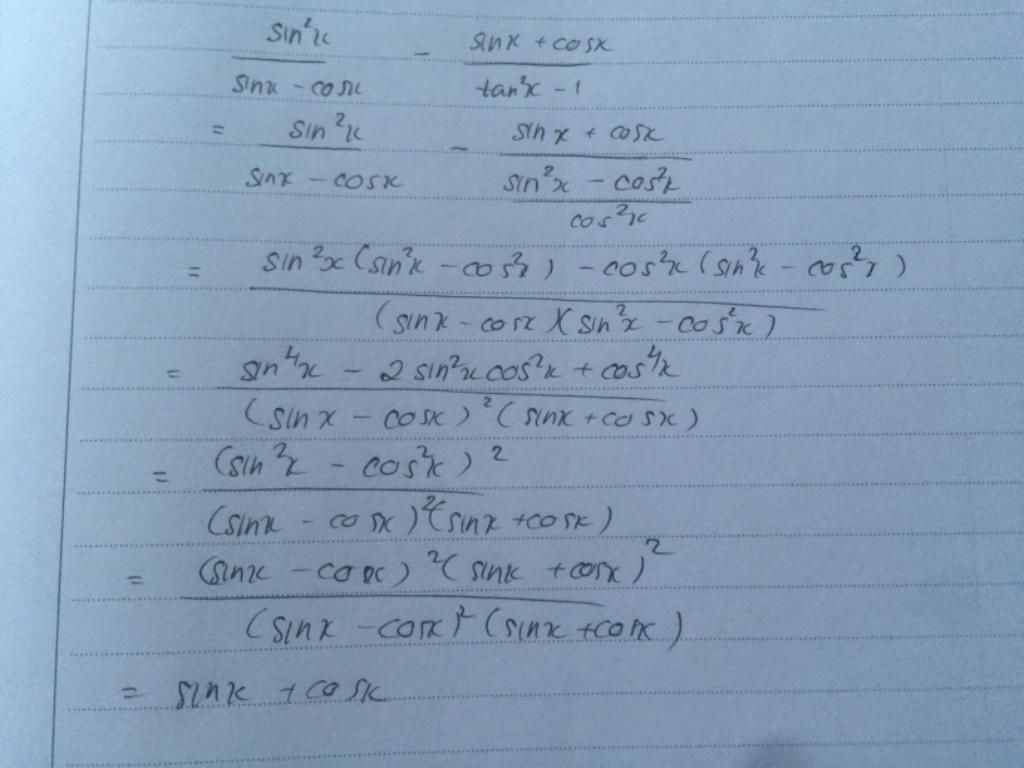 sin²x / (sinx - cosx) - (sinx + cosx) / (tan²x - 1)
= sin²x / (sinx - cosx) - (sinx + cosx) / ((sin²x - cos²x) / cos²x)
= (sin²x (sin²x - cos²x) - cos²x (sin²x - cos²x)) / ((sinx - cosx)(sin²x - cos²x))
= (sin⁴x - 2 sin²x cos²x + cos⁴x) / ((sinx - cosx)² (sinx + cosx))
= (sin²x - cos²x)² / ((sinx - cosx)² (sinx + cosx))
= (sinx - cosx)² (sinx + cosx)² / ((sinx - cosx)² (sinx + cosx))
= sinx + cosx